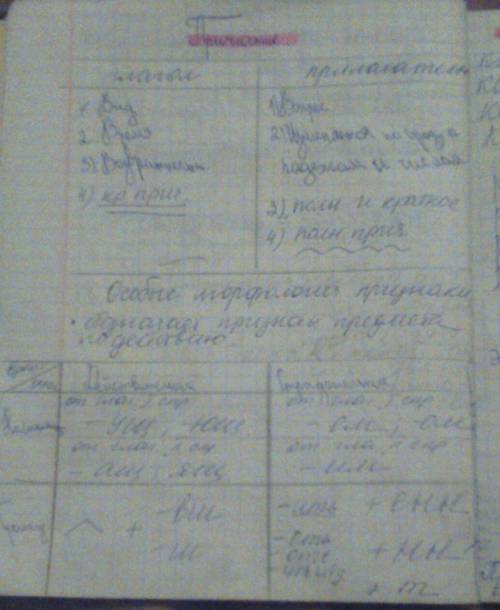 Причастие
глагол
прилагательн
1. Вид
2. Время
3) Возвратность
4) кр. прич.
1) Вопрос
2) Изменяется по роду
падежам и числам
3) полн и краткое
4) полн. прич
Особые морфологич признаки
• обозначает признак предмета
по действию.
Действительные
Страдательные
от глаг. I спр
- ущ, - ющ
от глаг. II спр
- ащ, ящ
от глаг. I спр
- ем, - ом
от глаг. II спр
- им
+ - вш
- ш
- ить + енн
- ать
+ нн
+ т